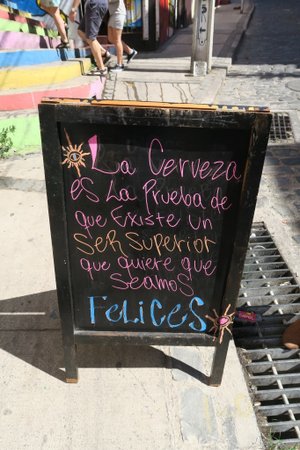 La Cerveza
es La Prueba de
que Existe un
Ser Superior
que quiere que
seamos
Felices